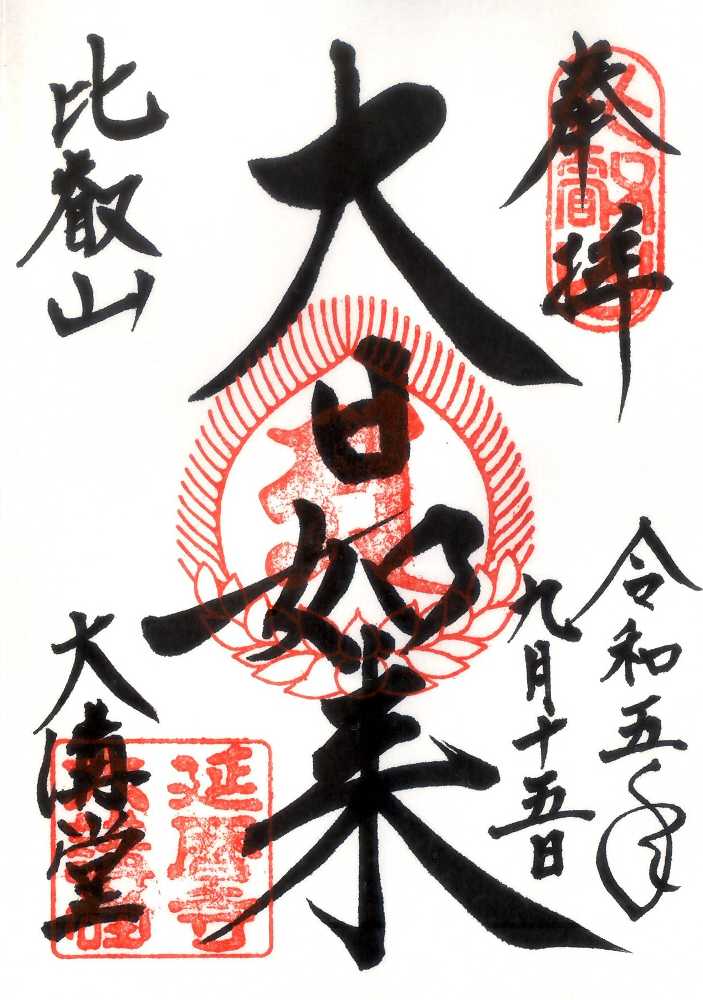 奉拝
令和五年
九月十五日
大日如来
比叡山
大講堂
延暦寺